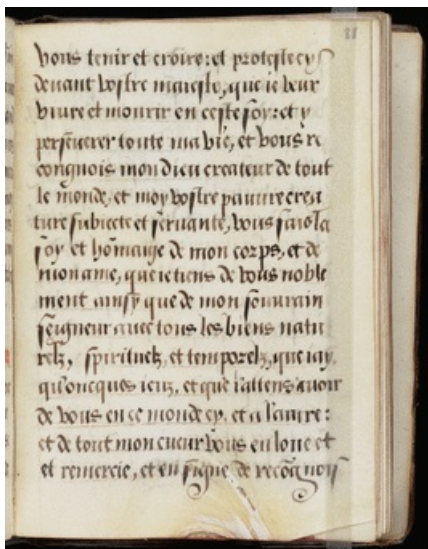 vous tenir et croire: et proteste cy
devant vostre maieste, que ie veux
vivre et mourir en ceste foy: et y
perseverer toute ma vie, et vous re
congnois mon dieu createur de tout
le monde, et moy vostre pauvre crea
ture subiecte et servante, vous fais la
foy et hõmaige de mon corps, et de
mon ame, que ie tiens de vous noble
ment ainsy que de mon souverain
seigneur avec tous les biens natu
relz, spirituelz, et temporelz, que iay,
qu'oncques ieuz, et que i'attens avoir
de vous en ce monde cy, et a l'autre:
et de tout mon cueur vous en loue et
et remercie, et en signe de recõgnois